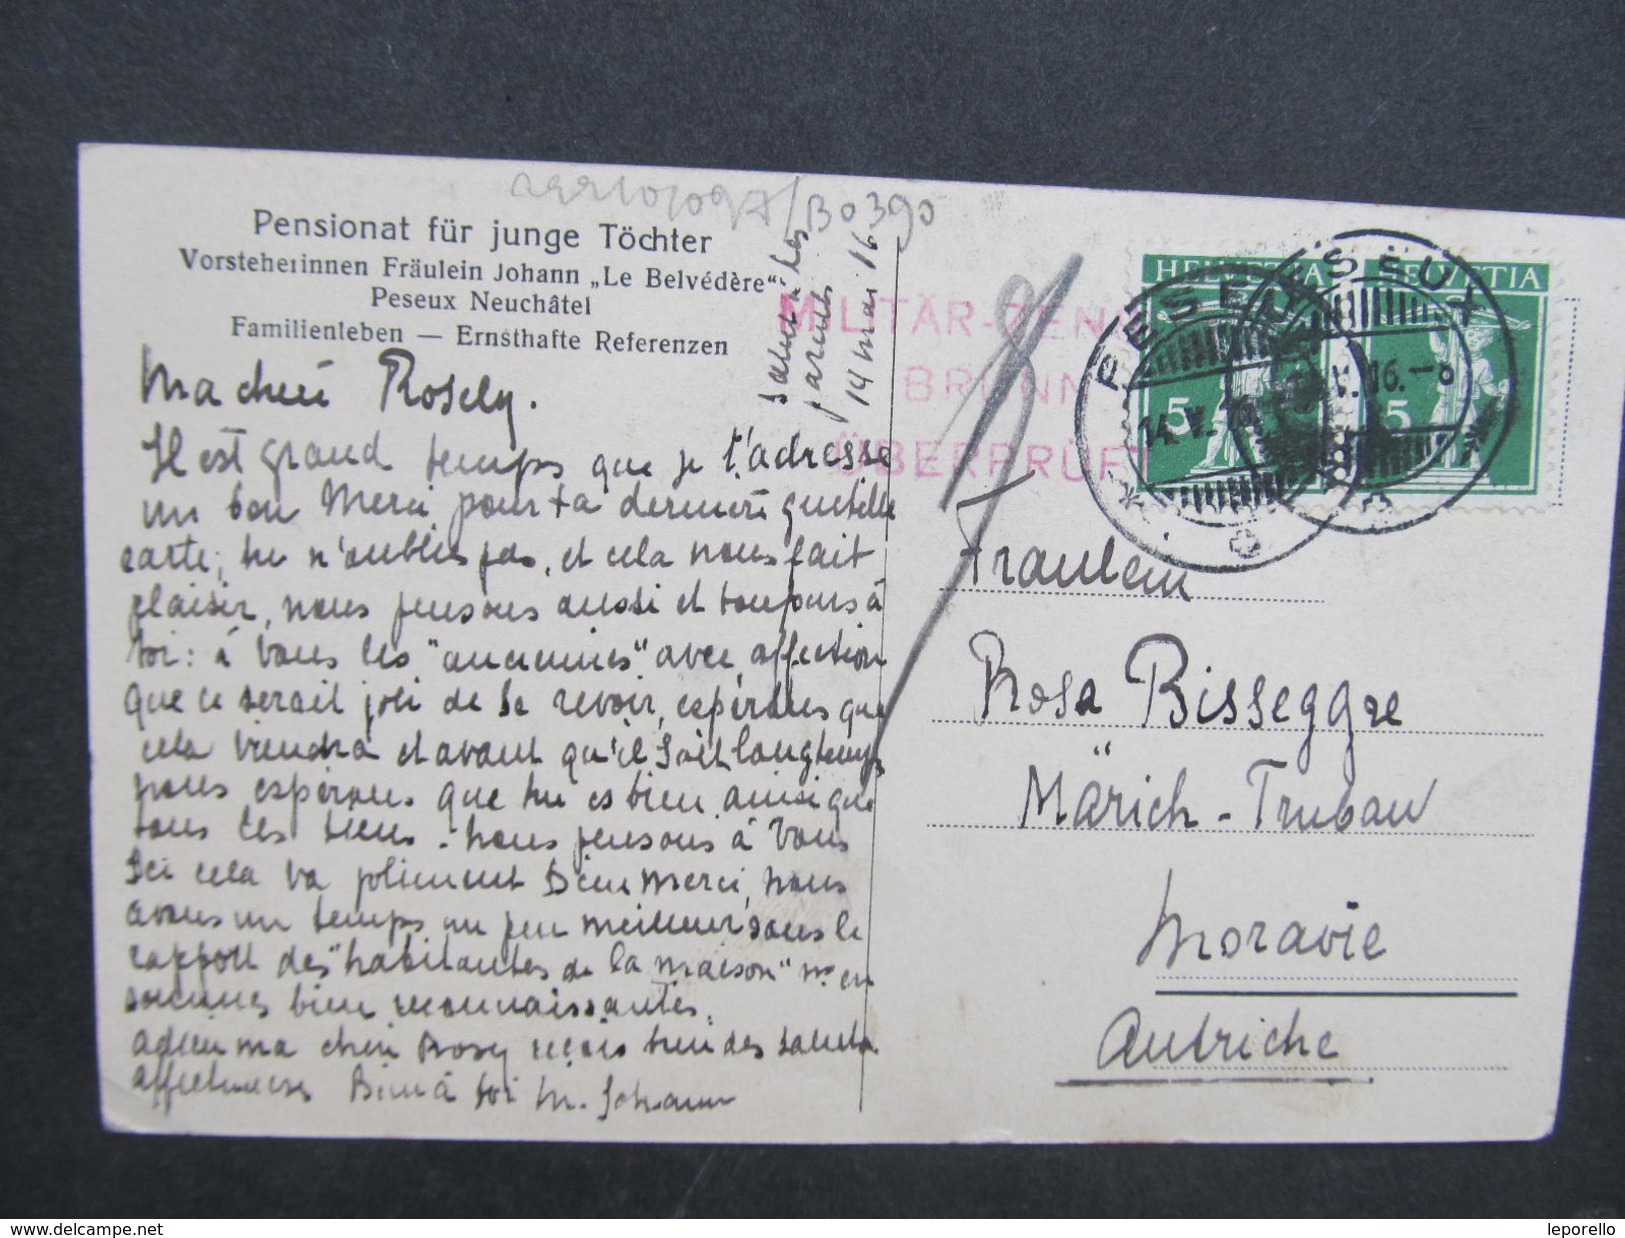 B0390
Pensionat für junge Töchter
Vorsteherinnen Fräulein Johann „Le Belvédère“
Peseux Neuchâtel
Familienleben — Ernsthafte Referenzen
14 mai 16
Ma chérie Rosely.
Il est grand temps que je t'adresse
un bon Merci pour ta dernière gentille
carte; tu n'oublies pas, et cela nous fait
plaisir, nous pensons aussi et toujours à
toi: à vous les "anciennes" avec affection
que ce serait joli de se revoir, espérons que
cela viendra et avant qu'il soit longtemps
nous espérons que tu es bien ainsi que
tous les tiens - nous pensons à Vous
Ici cela va joliment Dieu merci, nous
avons un temps un peu meilleur, sous le
rapport des "habitantes de la maison" ns. en
sommes bien reconnaissantes.
adieu ma chère Rosy reçois bien des saluts
affectueux Bien à toi M. Johann
MILITÄR-ZEN
BRÜNN
ÜBERPRÜFT
HELVETIA
HELVETIA
5
5
PESEUX
PESEUX
14.V.16
V.16.-8
Fräulein
Rosa Bissegger
Märich-Trubau
Moravie
Autriche
delcampe.net
leporello